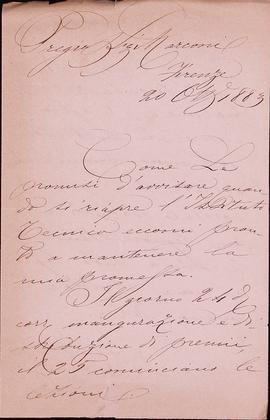 Pregio Sig Marconi
Firenze
20 Ot 1883
Come La
promisi d'avvisare quan
do si riapre l'Istituto
Tecnico eccomi pron
to a mantenere la
mia promessa.
Il giorno 24 di
corr. inaugurazione e di
stribuzione di premii,
il 25 cominciano le
lezioni.